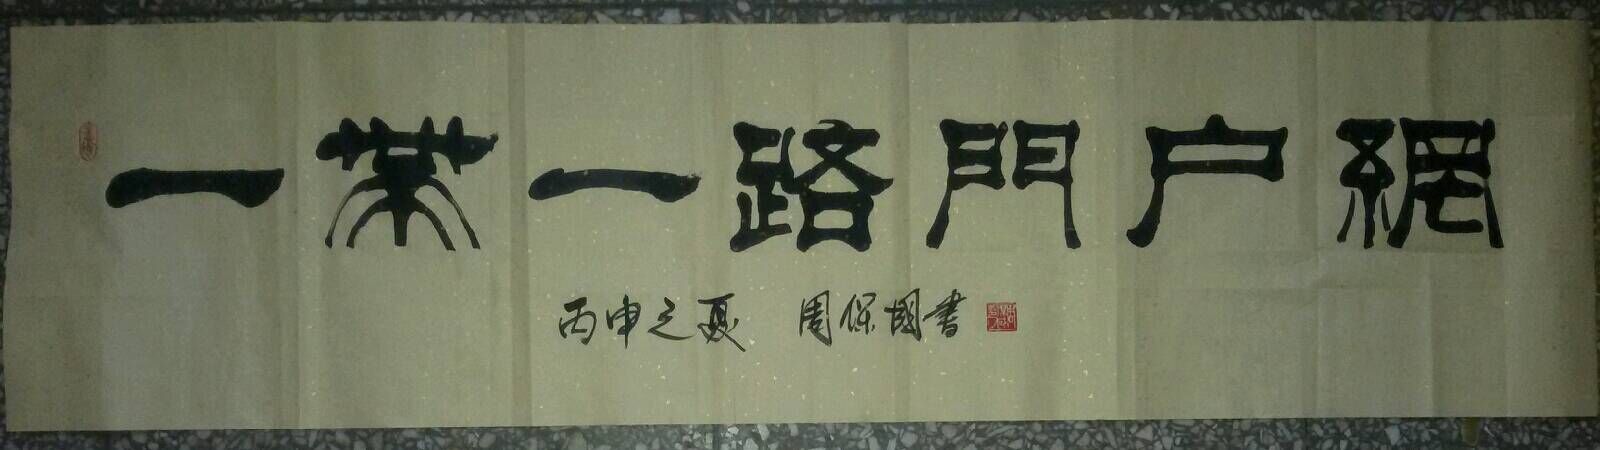 一帶一路門户網
丙申之夏 周保國書